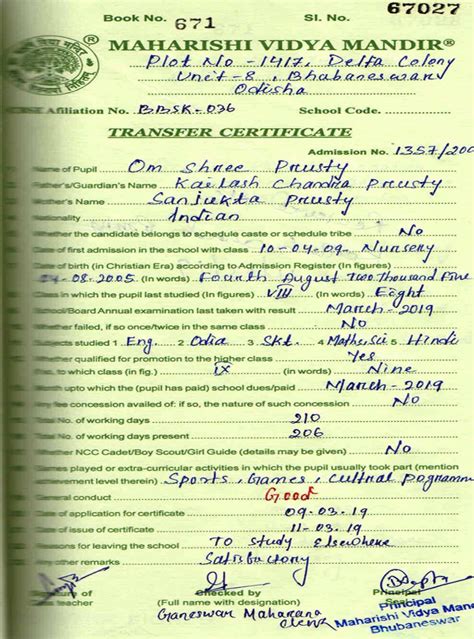 Book No. 671 Sl. No. 67027
MAHARISHI VIDYA MANDIR®
Plot No - 1417, Delta Colony
Unit-8, Bhubaneswar
Odisha
Afiliation No. BBSK-036 School Code.
TRANSFER CERTIFICATE
Admission No. 1357/200
Name of Pupil Om Shree Prusty
Father's/Guardian's Name Kailash Chandra Prusty
Mother's Name Sanjukta Prusty
Nationality Indian
Whether the candidate belongs to schedule caste or schedule tribe No
Date of first admission in the school with class 10-04-09. Nursery
Date of birth (in Christian Era) according to Admission Register (In figures)
04-08-2005 (In words) Fourth August Two Thousand Five
Class in which the pupil last studied (in figures) VIII (In words) Eight
School/Board Annual examination last taken with result March-2019
Whether failed, if so once/twice in the same class No
Subjects studied 1 Eng. 2 Odia 3 Skt. 4 Math&Sci 5 Hindi
Whether qualified for promotion to the higher class Yes
so, to which class (in fig.) IX (in words) Nine
Month upto which the (pupil has paid) school dues/paid March-2019
Any fee concession availed of: if so, the nature of such concession No
Total No. of working days 210
Total No. of working days present 206
Whether NCC Cadet/Boy Scout/Girl Guide (details may be given) No
Games played or extra-curricular activities in which the pupil usually took part (mention
achievement level therein) Sports, Games, Cultural Programme
General conduct Good
Date of application for certificate 09-03-19
Date of issue of certificate 11-03-19
Reasons for leaving the school To Study Elsewhere
Any other remarks Satisfactory
Checked by Principal
teacher (Full name with designation) Seal
Ganeswar Maharana
Clerk
Principal
Maharishi Vidya Man
Bhubaneswar